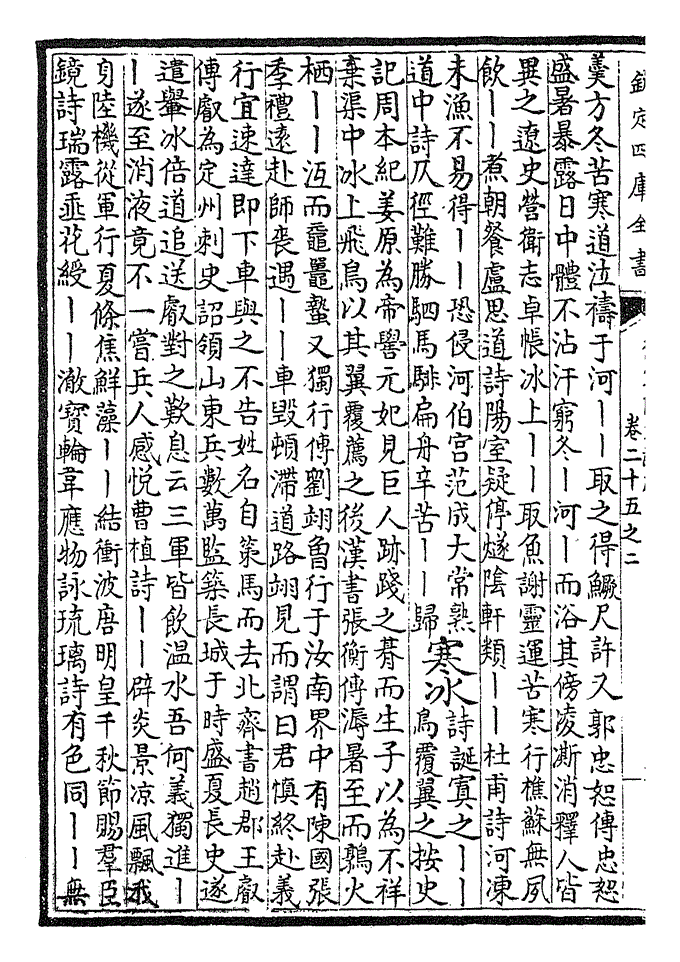 欽定四庫全書
卷二十五之二
羹方冬苦寒道泣禱于河丨丨取之得鱖尺許又郭忠恕傳忠恕
盛暑暴露日中體不沾汗窮冬丨河丨而浴其傍凌澌消釋人皆
異之遼史營衛志卓帳冰上丨丨取魚謝靈運苦寒行樵蘇無夙
飲丨丨煮朝餐盧思道詩陽室疑停燧陰軒類丨丨杜甫詩河凍
未漁不易得丨丨恐侵河伯宫范成大常熟
道中詩仄徑難勝駟馬騑扁舟辛苦丨丨歸
寒冰
詩誕寘之丨丨
鳥覆翼之按史
記周本紀姜原為帝嚳元妃見巨人跡踐之朞而生子以為不祥
棄渠中冰上飛鳥以其翼覆薦之後漢書張衡傳溽暑至而鶉火
栖丨丨沍而黿鼉蟄又獨行傳劉翊魯行于汝南界中有陳國張
季禮遠赴師喪遇丨丨車毀頓滯道路翊見而謂曰君慎終赴義
行宜速達即下車與之不告姓名自策馬而去北齊書趙郡王叡
傳叡為定州刺史詔領山東兵數萬監築長城于時盛夏長史遂
遣轝冰倍道追送叡對之歎息云三軍皆飲温水吾何義獨進丨
丨遂至消液竟不一嘗兵人感悦曹植詩丨丨辟炎景凉風飄我
身陸機從軍行夏條焦鮮藻丨丨結衝波唐明皇千秋節賜羣臣
鏡詩瑞露垂花綬丨丨澈寶輪韋應物詠琉璃詩有色同丨丨無